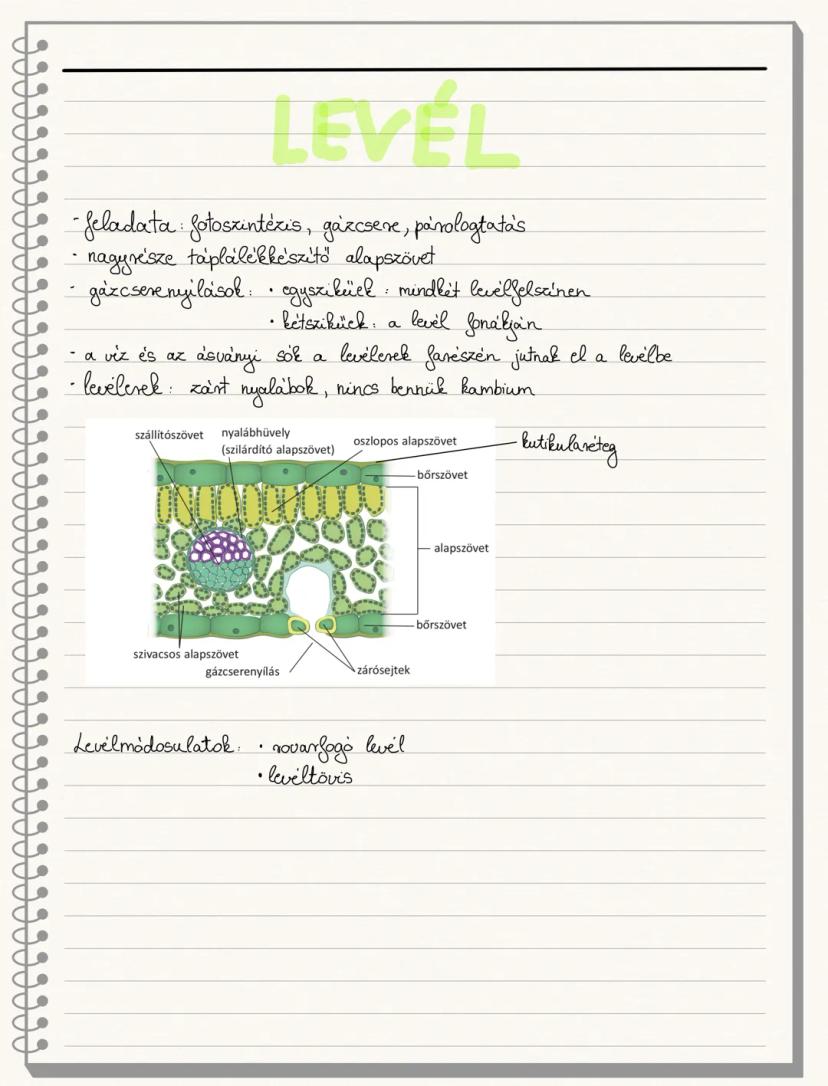 LEVÉL
- feladata: fotoszintézis, gázcsere, párologtatás
- nagyrésze táplálékkészítő alapszövet
- gázcserenyílások: • egyszikűek: mindkét levélfelszínen
• kétszikűek: a levél fonákján
- a víz és az ásványi sók a levélerek farészén jutnak el a levélbe
- levélerek: zárt nyalábok, nincs bennük kambium
szállítószövet
nyalábhüvely
(szilárdító alapszövet)
oszlopos alapszövet
kutikularéteg
bőrszövet
alapszövet
bőrszövet
szivacsos alapszövet
gázcserenyílás
zárósejtek
Levélmódosulatok: • rovarfogó levél
• levéltövis